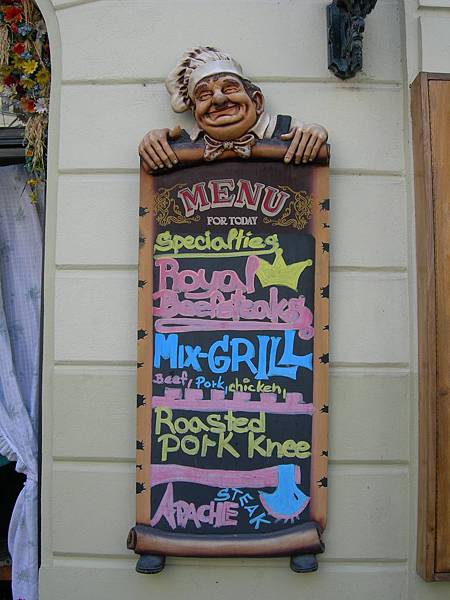 MENU
FOR TODAY
Specialties
Royal
Beefsteaks
MIX-GRILL
Beef, Pork, chicken,
Roasted
PORK Knee
APACHE STEAK